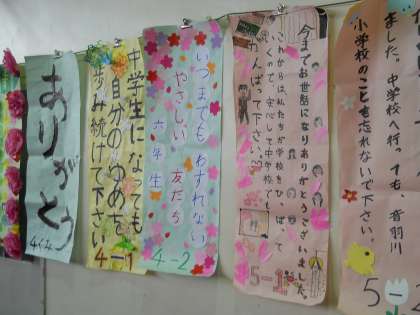 ありがとう
4くみ
中学生になっても
自分のゆめを
歩み続けて下さい
4-1
いつまでも わすれない
やさしい 友だち
六年生
4-2
今までお世話になりありがとうございました。
これからは私たちが学校をひっぱって
いくので、安心して中学校でも
がんばって下さい。
5-1
ました。中学校へ行っても、音羽川
小学校のことも忘れないで下さい。
5-2